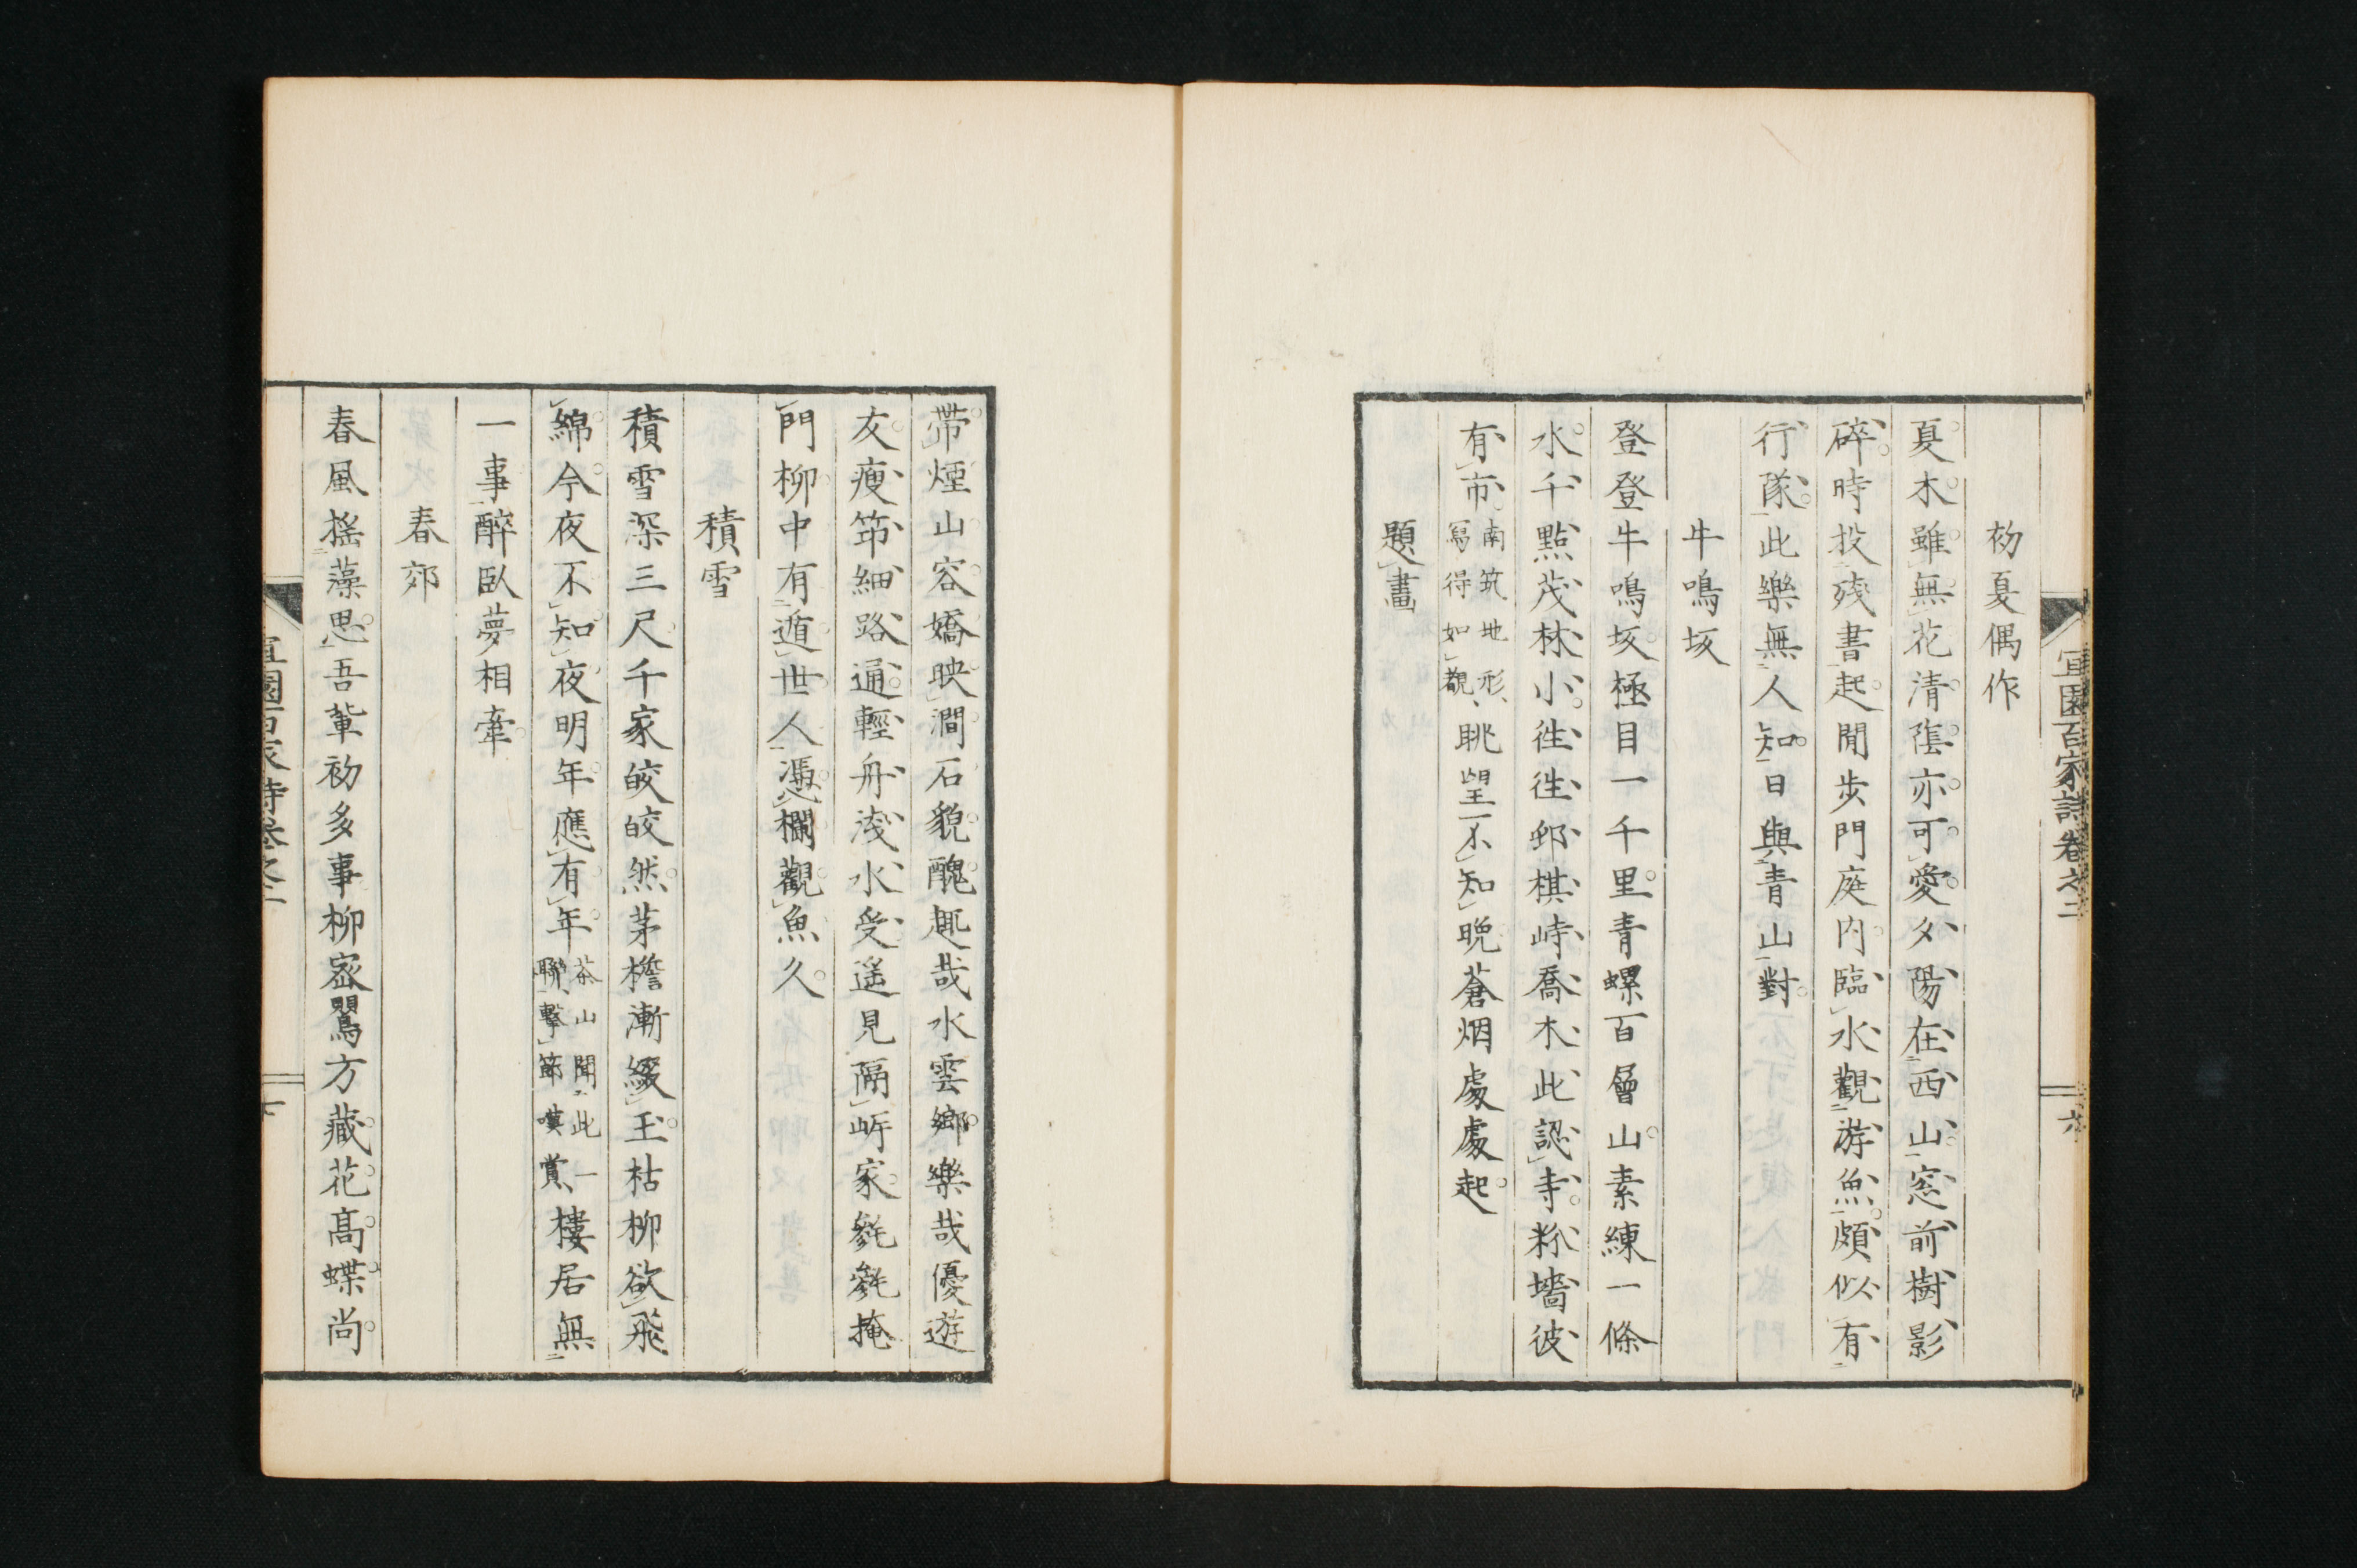 宜園百家詩卷之二
六
初夏偶作
夏木雖無花清陰亦可愛夕陽在西山窓前樹影
碎時投殘書起閒步門庭内臨水觀游魚頗似有
行隊此樂無人知日與青山對
牛鳴坂
登登牛鳴坂極目一千里青螺百層山素練一條
水千點茂林小徃徃邱棋峙喬木此認寺粉墻彼
有市南筑地形寫得如觀眺望不知晩蒼烟處處起
題畫
帶煙山容嬌映澗石貌醜趣哉水雲鄉樂哉優遊
友瘦笻細路通輕舟淺水受遙見隔岍家毿毿掩
門柳中有遁世人憑欄觀魚久
積雪
積雪深三尺千家皎皎然茅檐漸綴玉枯柳欲飛
綿今夜不知夜明年應有年茶山聞此一聯擊節嘆賞樓居無
一事醉臥夢相牽
春郊
春風搖藻思吾輩初多事柳密鶯方藏花高蝶尚
宜園百家詩卷之二